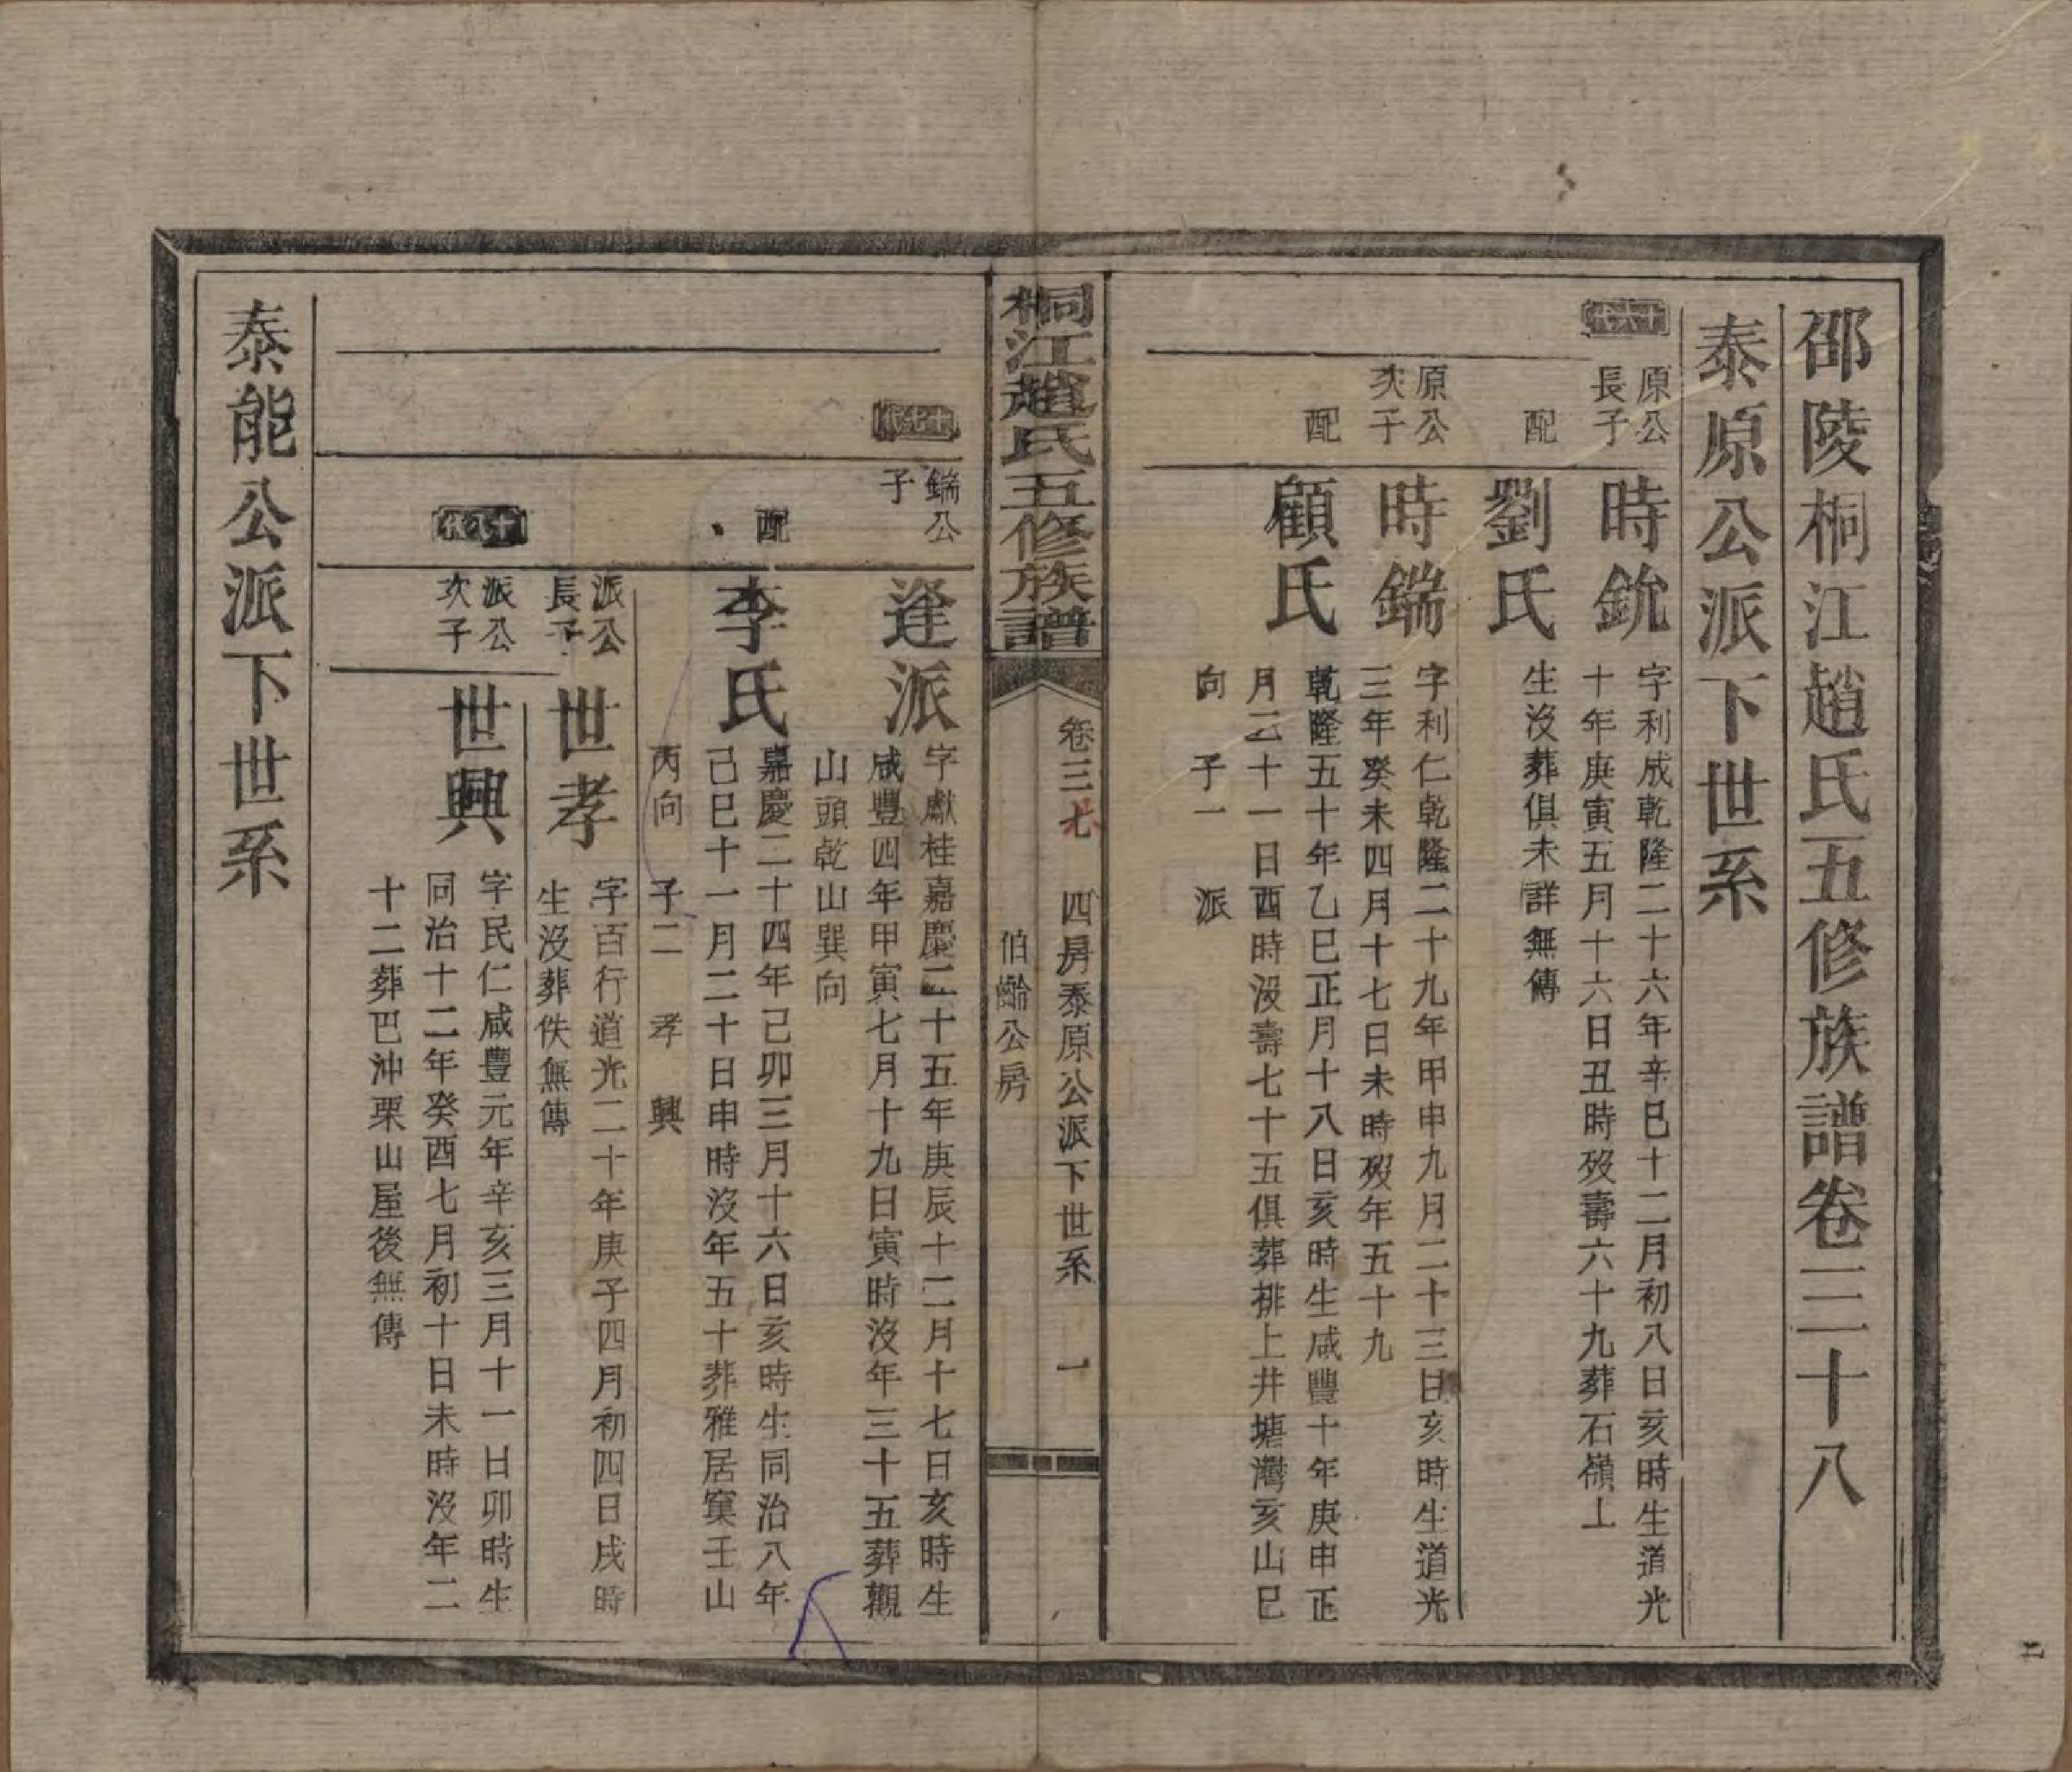 邵陵桐江趙氏五修族譜卷三十八
泰原公派下世系
十六代
原公長子
時銃
字利成乾隆二十六年辛巳十二月初八日亥時生道光
十年庚寅五月十六日丑時歿壽六十九葬石嶺上
配
劉氏
生沒葬俱未詳無傳
原公次子
時鍴
字利仁乾隆二十九年甲申九月二十三日亥時生道光
三年癸未四月十七日未時歿年五十九
配
顧氏
乾隆五十年乙巳正月十八日亥時生咸豐十年庚申正
月二十一日酉時沒壽七十五俱葬排上井塘灣亥山巳
向 子一 派
桐江趙氏五修族譜
卷三七 四房泰原公派下世系 一
伯齡公房
十七代
鍴公子
逢派
字獻桂嘉慶二十五年庚辰十二月十七日亥時生
咸豐四年甲寅七月十九日寅時沒年三十五葬觀
山頭乾山巽向
配
李氏
嘉慶二十四年己卯三月十六日亥時生同治八年
己巳十一月二十日申時沒年五十葬雅居窠壬山
丙向 子二 孝 興
十八代
派公長子
世孝
字百行道光二十年庚子四月初四日戌時
生沒葬佚無傳
派公次子
世興
字民仁咸豐元年辛亥三月十一日卯時生
同治十二年癸酉七月初十日未時沒年二
十二葬巴沖栗山屋後無傳
泰能公派下世系